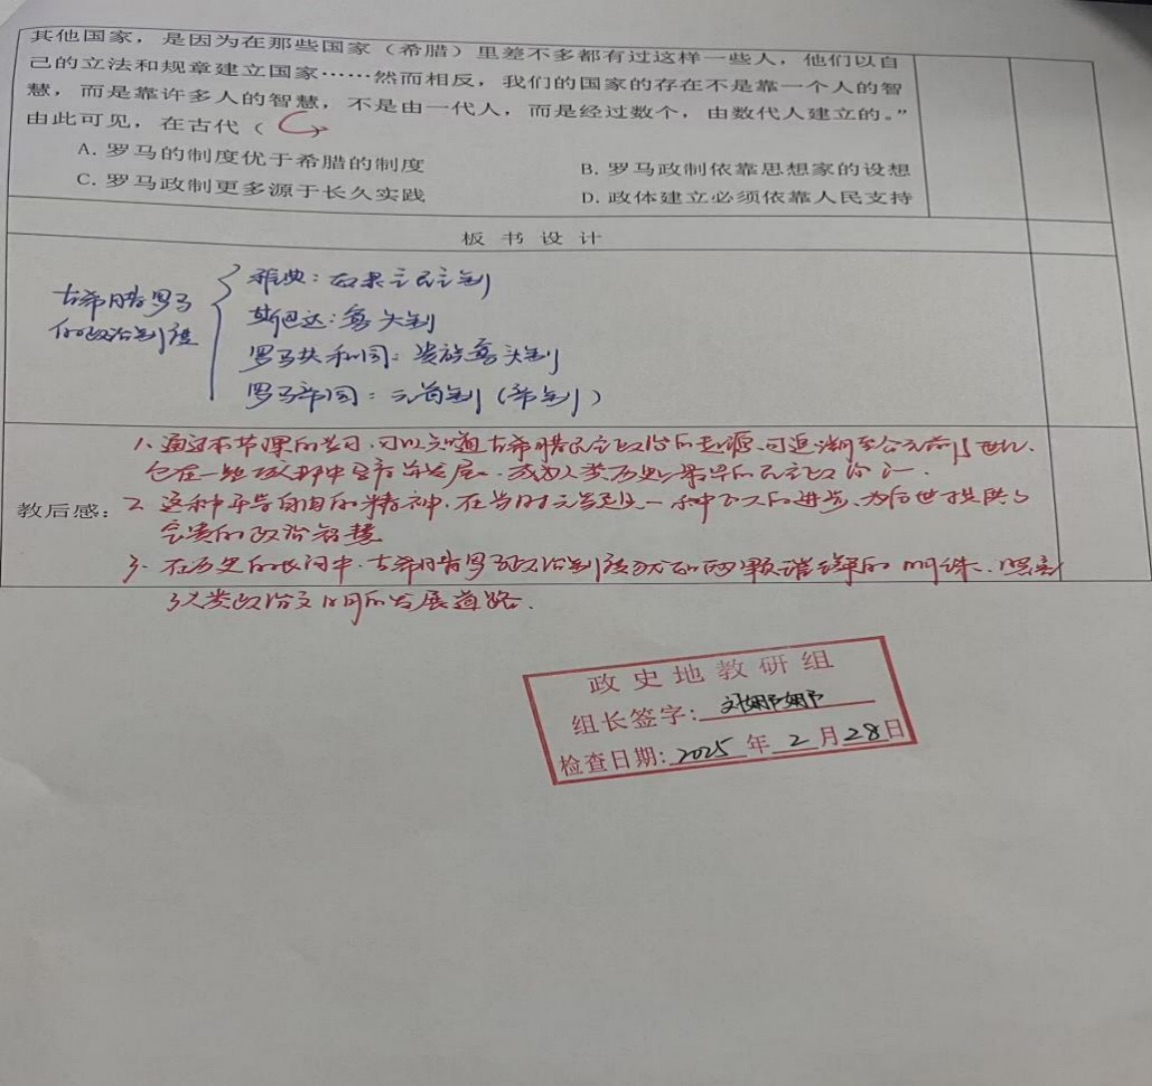 其他国家，是因为在那些国家（希腊）里差不多都有过这样一些人，他们以自
己的立法和规章建立国家……然而相反，我们的国家的存在不是靠一个人的智
慧，而是靠许多人的智慧，不是由一代人，而是经过数个，由数代人建立的。”
由此可见，在古代（ C
A. 罗马的制度优于希腊的制度
B. 罗马政制依靠思想家的设想
C. 罗马政制更多源于长久实践
D. 政体建立必须依靠人民支持
板书设计
古希腊罗马
的政治制度
雅典：奴隶主民主制
斯巴达：寡头制
罗马共和国：贵族寡头制
罗马帝国：元首制（帝制）
教后感：
1、通过本节课的学习，可以知道古希腊民主政治的起源，可追溯至公元前8世纪、
它在一些城邦中逐渐发展，成为人类历史上最早的民主政治之一.
2 这种平等自由的精神，在当时无疑是一种巨大的进步，为后世提供了
宝贵的政治智慧
3. 在历史的长河中，古希腊罗马政治制度犹如两颗璀璨的明珠、照亮
了人类政治文明的发展道路.
政史地教研组
组长签字：刘娜娜
检查日期：2025年2月28日